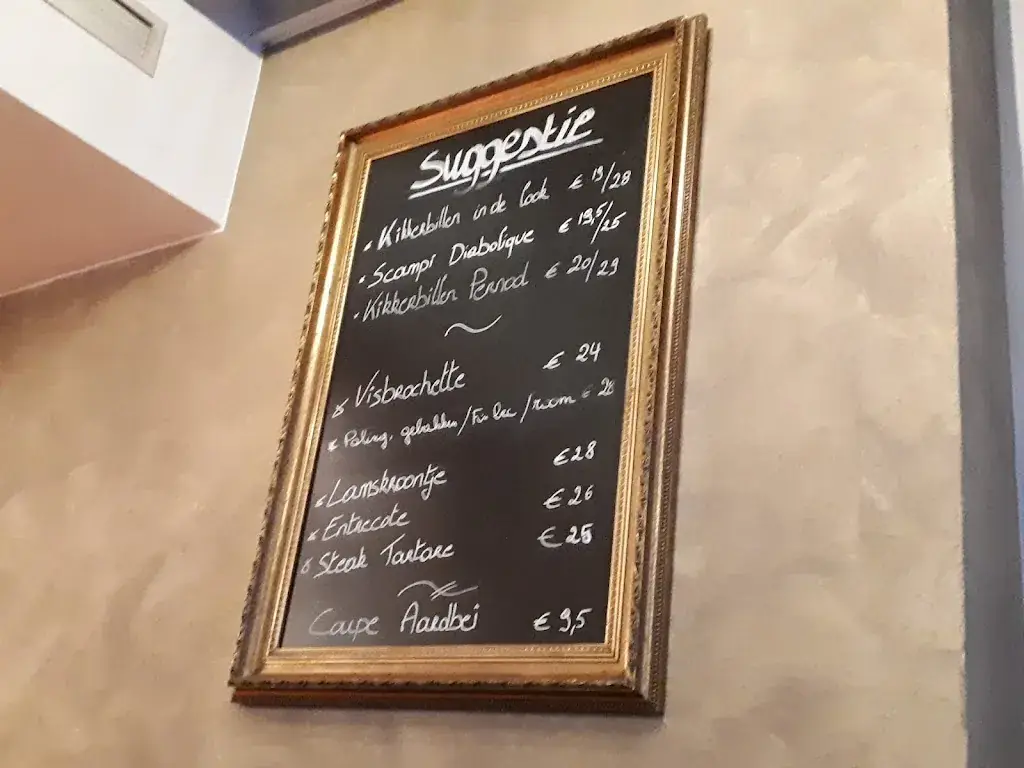 Suggestie
Kikkerbillen in de look € 19/28
Scampi Diabolique € 19,5/25
Kikkerbillen Pernod € 20/29
Visbrochette € 24
Paling, gebakken / / room € 28
Lamskroontje € 28
Entrecote € 26
Steak Tartare € 25
Coupe Aardbei € 9,5